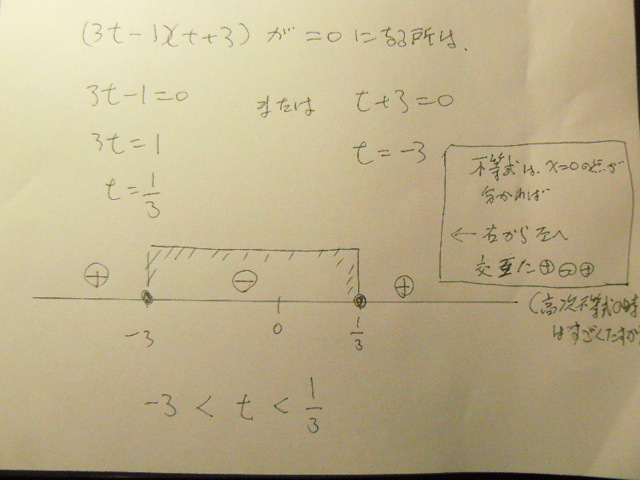 (3t-1)(t+3) が =0 になる所は、
3t-1=0 または t+3=0
3t=1
t=-3
t=1/3
不等式は、x=0の点が
分かれば
← 右から左へ
交互に⊕⊖⊕
(高次不等式の時
はすごくたすか
⊕ ⊖ ⊕
-3 0 1/3
-3 < t < 1/3